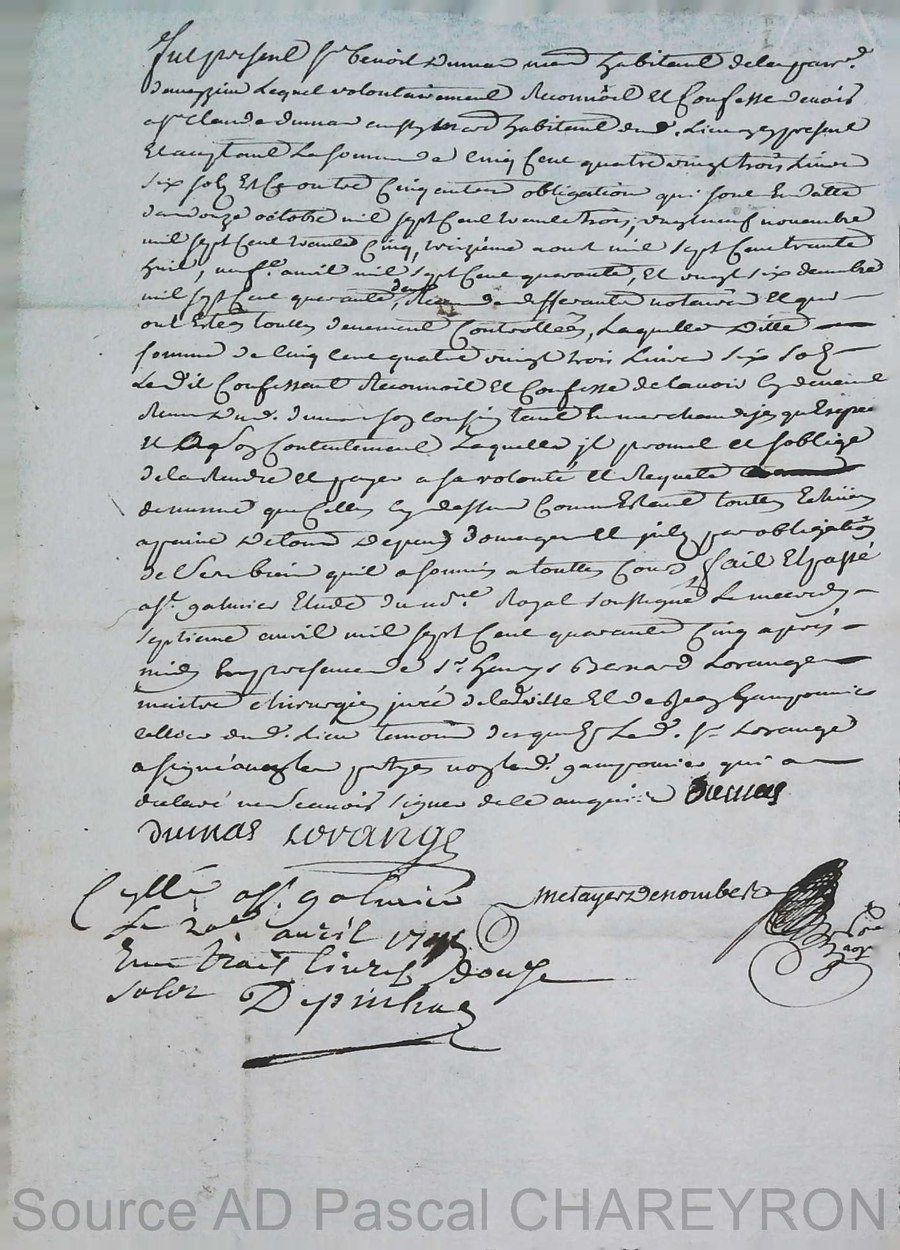 Fut present Sr benoit Dumas mard habitant de la parr.e
lequel volontairement Reconnoit et Confesse devoir
a Sr Claude dumas aussy mard habitant dud. Lieu ycy present
Et acceptant La somme de Cinq Cent quatre vingt trois Livres
six solz Et Ce outre Cinq autres obligation qui sont En datte
du onze octobre mil sept Cent trente trois, vingt neuf novembre
mil sept Cent trente Cinq, treizieme aout mil sept Cent trente
huit, avril mil sept Cent quarante, Et vingt six decembre
mil sept Cent quarante deux, de differants notaires Et qui
ont Estés touttes deuement Controllées, Laquelle ditte
somme de Cinq Cent quatre vingt trois Livres six solz
Ledit Confessant Reconnoit Et Confesse de lavoir cy devant
dud. dumas son Cousin tant En marchandises qu'Espece
Et a son Contentement Laquelle jl promet et soblige
de la Rendre et payer a sa volonté et Requete
de mesme que Celles cy dessus touttes
a peine De tous Depens domages par obligation
de ses biens qu'il a soumis a touttes Cours, fait Et passé
a St. galmier Etude du no.re Royal soussigné Le mecredy
septieme avril mil sept Cent quarante Cinq apres
midy En presence de Sr Bernard Lorange
maitre chirurgien juré de la ville Et de Jean
dud. Lieu temoins desquels Led. Sr Lorange
a signé avec les partyes non led. qui a
declaré ne scavoir signer de ce enquis Dumas
Dumas Lorange
Metayer Denombel
no.re
roy
Cllé a St. galmier
Le avril 1745
Reçu trois livres douze
solz Depinhac
Source AD Pascal CHAREYRON